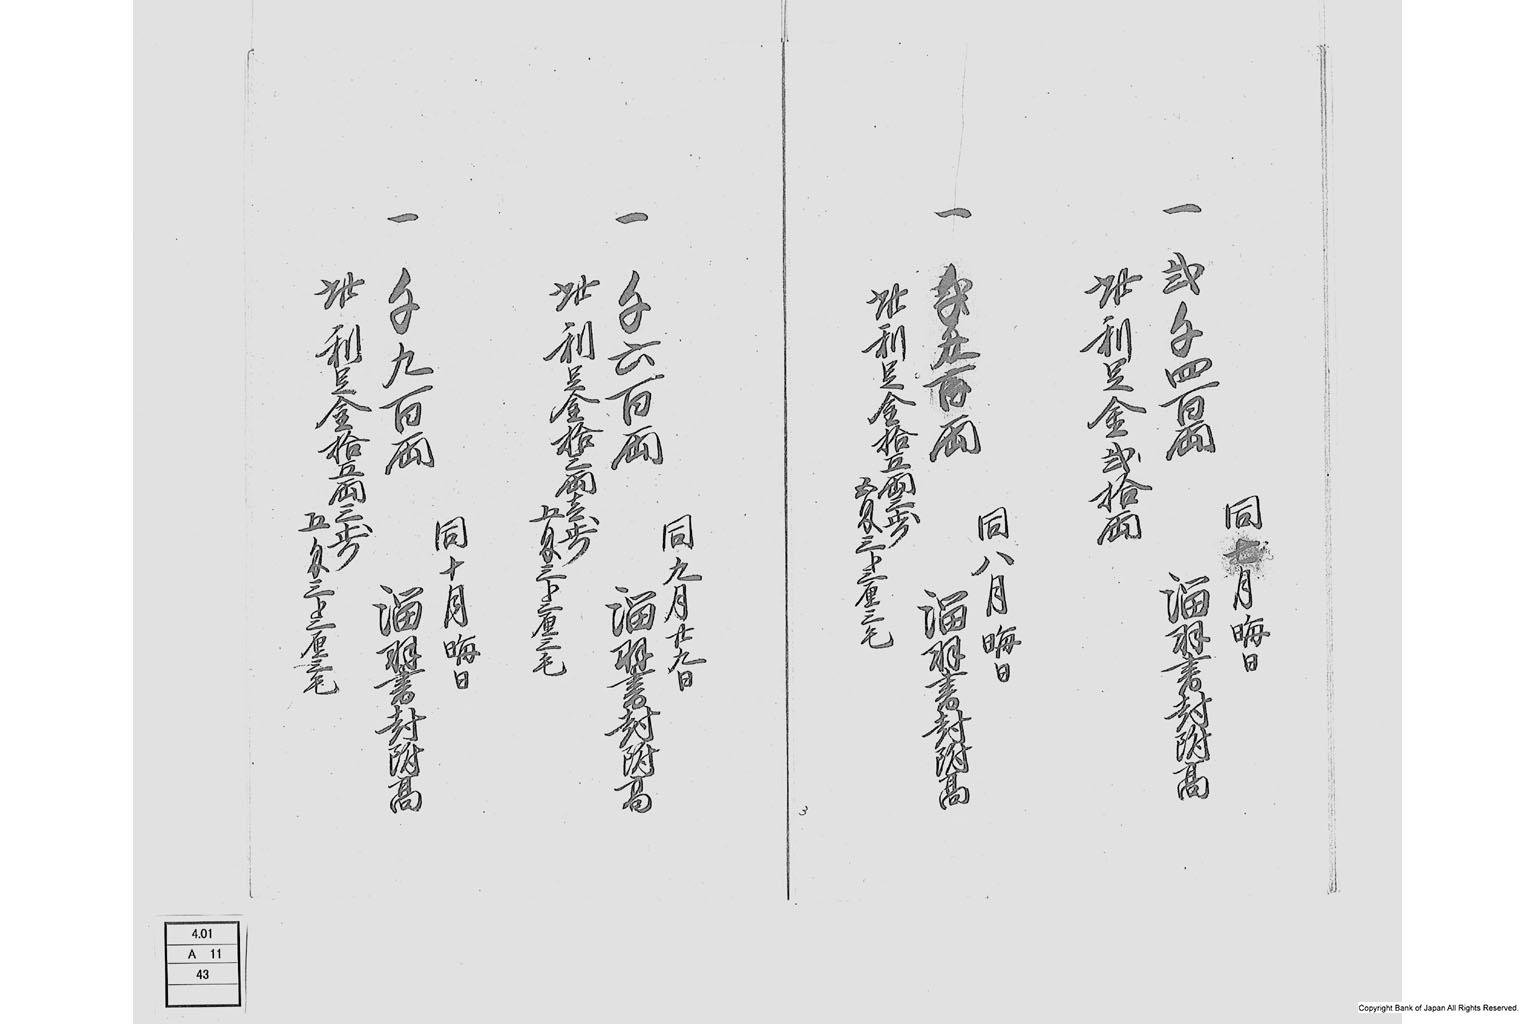 同七月晦日
一 弐千四百両
溜羽書封附高
此利足金弐拾両
同八月晦日
一 千九百両
溜羽書封附高
此利足金拾五両三歩
五匁三分三厘三毛
同九月廿九日
一 千六百両
溜羽書封附高
此利足金拾三両壱歩
五匁三分三厘三毛
同十月晦日
一 千九百両
溜羽書封附高
此利足金拾五両三歩
五匁三分三厘三毛
3
4.01
A 11
43
Copyright Bank of Japan All Rights Reserved.